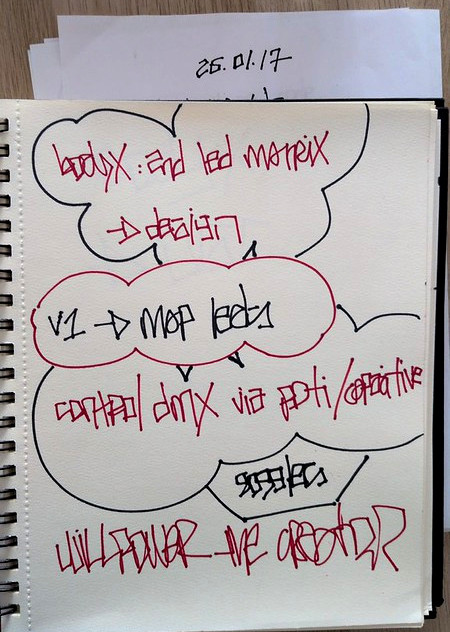 26.01.17
bodyX: 2nd led matrix
→ design
v1 → map leds
control dmx via poti/capacitive
goggles
willpower the creator